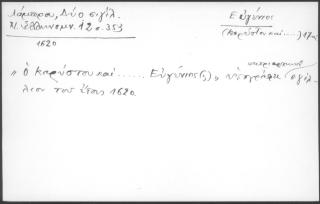 Λάμπρου, Δύο σιγίλ.
Ν. Ἑλληνομν. 12 σ. 353
1620
Εὐγένιος
(Καρύστου καί ....) 17ος
" ὁ Καρύστου καί ...... Εὐγένιος(;) " ὑπογράφει πατριαρχικόν σιγίλ-
λιον τοῦ ἔτους 1620.